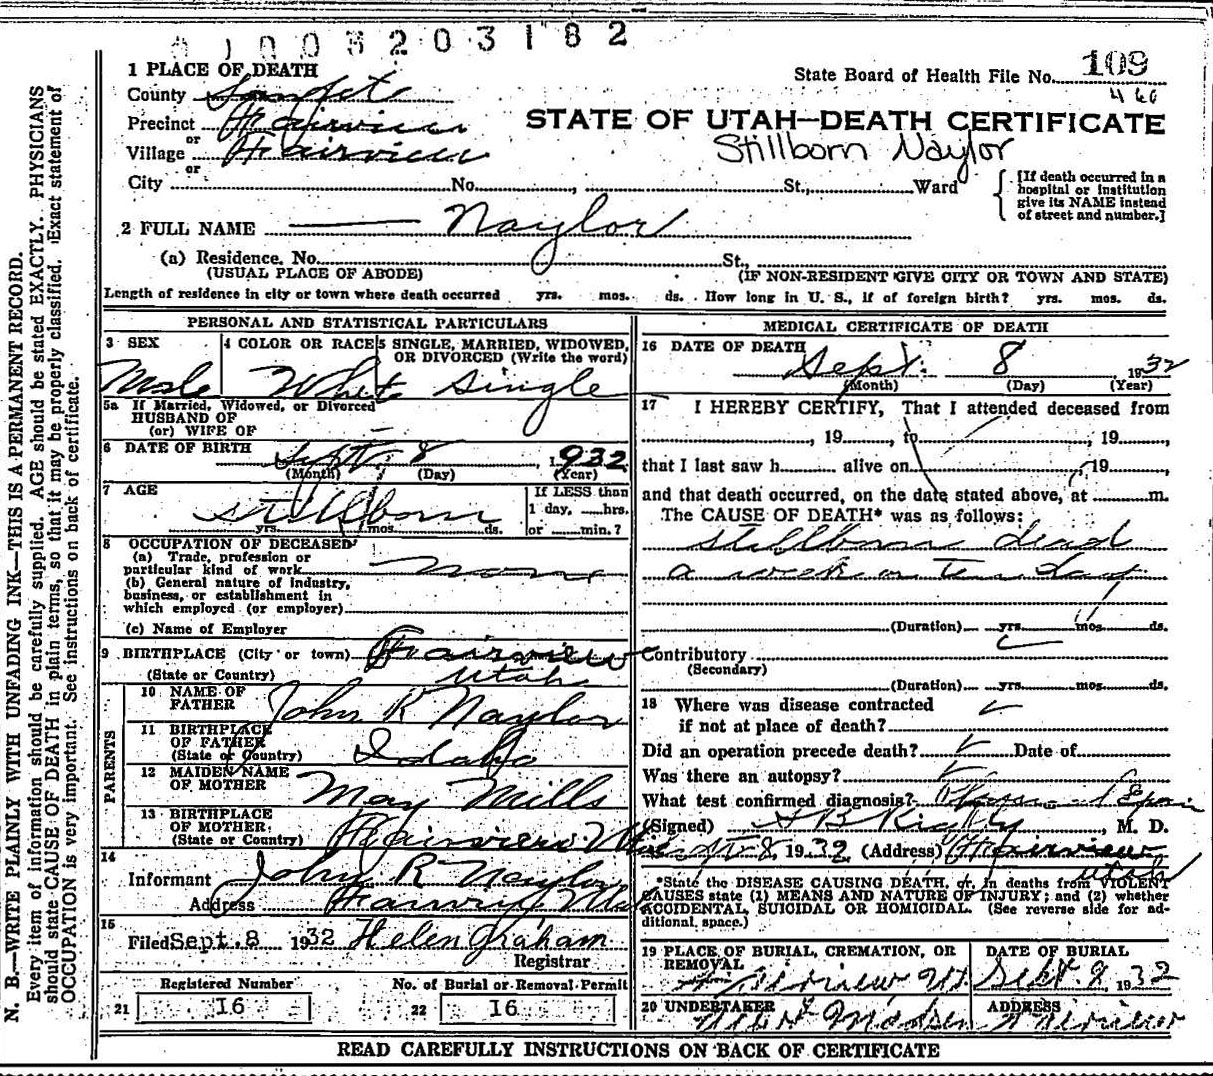 1003203182
1 PLACE OF DEATH
State Board of Health File No. 109
County Sanpete
460
Precinct Fairview
STATE OF UTAH—DEATH CERTIFICATE
or
Village Fairview
Stillborn Naylor
or
City No. , St., Ward
[If death occurred in a hospital or institution give its NAME instead of street and number.]
2 FULL NAME Naylor
(a) Residence. No. St.,
(USUAL PLACE OF ABODE) (IF NON-RESIDENT GIVE CITY OR TOWN AND STATE)
Length of residence in city or town where death occurred yrs. mos. ds. How long in U. S., if of foreign birth? yrs. mos. ds.
PERSONAL AND STATISTICAL PARTICULARS
3 SEX 4 COLOR OR RACE 5 SINGLE, MARRIED, WIDOWED,
OR DIVORCED (Write the word)
Male White Single
5a If Married, Widowed, or Divorced
HUSBAND OF
(or) WIFE OF
6 DATE OF BIRTH Sept. 8, 1932
(Month) (Day) (Year)
7 AGE
Stillborn
yrs. mos. ds.
If LESS than
1 day, ......hrs.
or ......min.?
8 OCCUPATION OF DECEASED
(a) Trade, profession or
particular kind of work none
(b) General nature of industry,
business, or establishment in
which employed (or employer)
(c) Name of Employer
9 BIRTHPLACE (City or town) Fairview
(State or Country) Utah
PARENTS
10 NAME OF
FATHER John R Naylor
11 BIRTHPLACE
OF FATHER
(State or Country) Idaho
12 MAIDEN NAME
OF MOTHER May Mills
13 BIRTHPLACE
OF MOTHER
(State or Country) Fairview
14
Informant John R Naylor
Address Fairview
15
Filed Sept. 8 1932 Helen Graham
Registrar
Registered Number No. of Burial or Removal Permit
21 16 22 16
MEDICAL CERTIFICATE OF DEATH
16 DATE OF DEATH
Sept. 8 1932
(Month) (Day) (Year)
17 I HEREBY CERTIFY, That I attended deceased from
, 19......, to , 19......,
that I last saw h........ alive on , 19......,
and that death occurred, on the date stated above, at ........m.
The CAUSE OF DEATH* was as follows:
stillborn dead
a week or ten days
(Duration) yrs. mos. ds.
Contributory
(Secondary)
(Duration) yrs. mos. ds.
18 Where was disease contracted
if not at place of death?
Did an operation precede death? Date of
Was there an autopsy?
What test confirmed diagnosis?
(Signed) , M. D.
Sept 8, 1932 (Address) Fairview
Utah
*State the DISEASE CAUSING DEATH, or, in deaths from VIOLENT
CAUSES state (1) MEANS AND NATURE OF INJURY; and (2) whether
ACCIDENTAL, SUICIDAL OR HOMICIDAL. (See reverse side for ad-
ditional space.)
19 PLACE OF BURIAL, CREMATION, OR
REMOVAL
Fairview Ut.
DATE OF BURIAL
Sept. 1932
20 UNDERTAKER ADDRESS
Madsen Fairview
READ CAREFULLY INSTRUCTIONS ON BACK OF CERTIFICATE
N. B.—WRITE PLAINLY WITH UNFADING INK—THIS IS A PERMANENT RECORD.
Every item of information should be carefully supplied. AGE should be stated EXACTLY. PHYSICIANS
should state CAUSE OF DEATH in plain terms, so that it may be properly classified. Exact statement of
OCCUPATION is very important. See instructions on back of certificate.